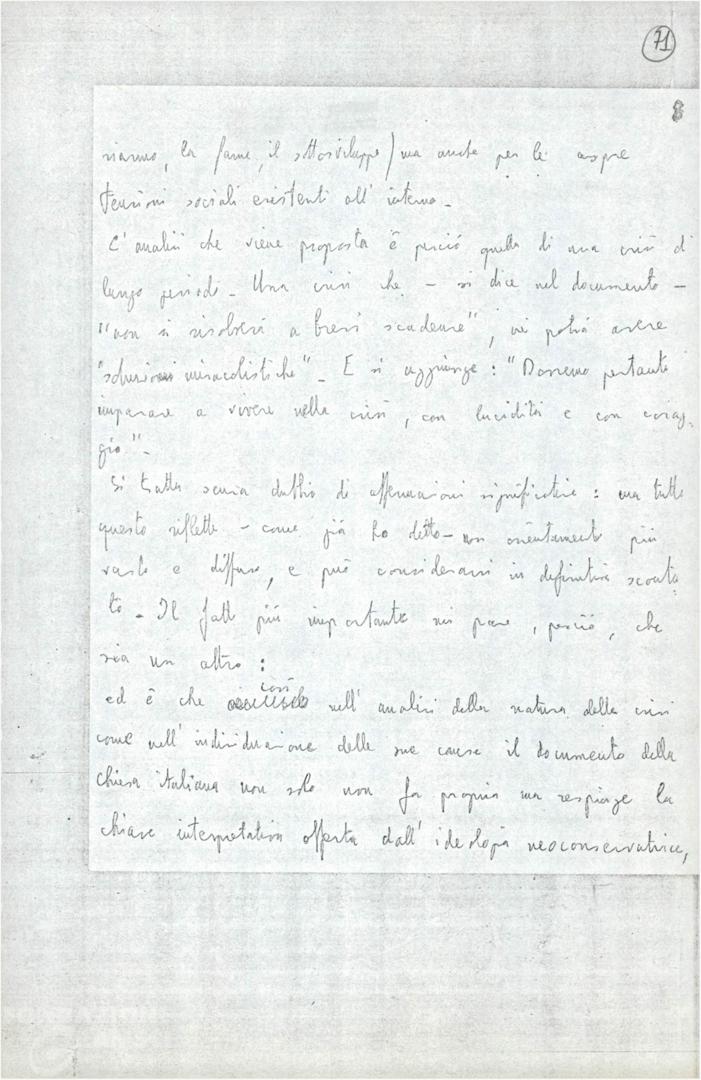 71
8
riarmo, la fame, il sottosviluppo) ma anche per le aspre
tensioni sociali esistenti all'interno -
L'analisi che viene proposta è perciò quella di una crisi di
lungo periodo - Una crisi che - si dice nel documento -
"non si risolverà a brevi scadenze", né potrà avere
"soluzioni miracolistiche" - E si aggiunge: "Dovremo pertanto
imparare a vivere nella crisi, con lucidità e con corag-
gio" -
Si tratta senza dubbio di affermazioni significative: ma tutto
questo riflette - come già ho detto - un orientamento più
vasto e diffuso, e può considerarsi in definitiva sconta
to - Il fatto più importante mi pare, perciò, che
sia un altro:
così
ed è che nell'analisi della natura della crisi
come nell'individuazione delle sue cause il documento della
chiesa italiana non solo non fa propria ma respinge la
chiave interpretativa offerta dall'ideologia neoconservatrice,